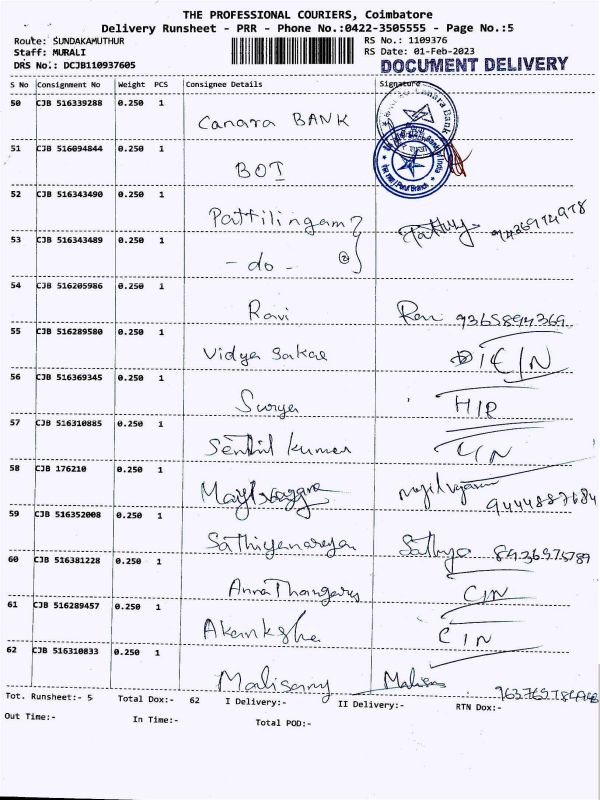 THE PROFESSIONAL COURIERS, Coimbatore
Delivery Runsheet - PRR - Phone No.:0422-3505555 - Page No.:5
Route: SUNDAKAMUTHUR
RS No.: 1109376
Staff: MURALI
RS Date: 01-Feb-2023
DRS No.: DCJB110937605
DOCUMENT DELIVERY
S No Consignment No Weight PCS Consignee Details Signature
50 CJB 516339288 0.250 1 Canara BANK
51 CJB 516094844 0.250 1 BOI
52 CJB 516343490 0.250 1 Pattilingam
53 CJB 516343489 0.250 1 - do - 2
54 CJB 516205986 0.250 1 Ravi Ravi 9365894369
55 CJB 516289580 0.250 1 Vidya Sakar
56 CJB 516369345 0.250 1 Surya
57 CJB 516310885 0.250 1 Senthil kumar
58 CJB 176210 0.250 1 9444887684
59 CJB 516352008 0.250 1 Sathiyanarayan Sathya
60 CJB 516381228 0.250 1 Anna Thangaraj CIN
61 CJB 516289457 0.250 1 Akanksha CIN
62 CJB 516310833 0.250 1 Malisamy
Tot. Runsheet:- 5 Total Dox:- 62 I Delivery:- II Delivery:- RTN Dox:-
Out Time:- In Time:- Total POD:-